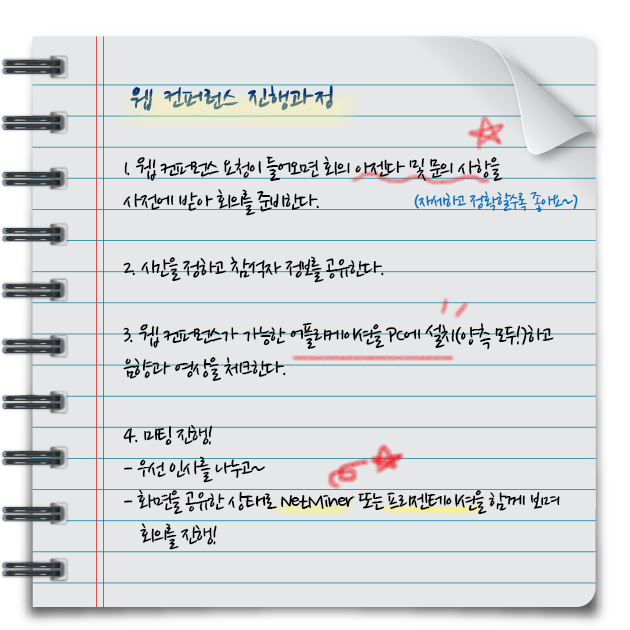 웹 컨퍼런스 진행과정
1. 웹 컨퍼런스 요청이 들어오면 회의 아젠다 및 문의 사항을
사전에 받아 회의를 준비한다.
(자세하고 정확할수록 좋아요~)
2. 시간을 정하고 참석자 정보를 공유한다.
3. 웹 컨퍼런스가 가능한 어플리케이션을 PC에 설치(양측 모두!)하고
음향과 영상을 체크한다.
4. 미팅 진행!
- 우선 인사를 나누고~
- 화면을 공유한 상태로 NetMiner 또는 프리젠테이션을 함께 보며
회의를 진행!